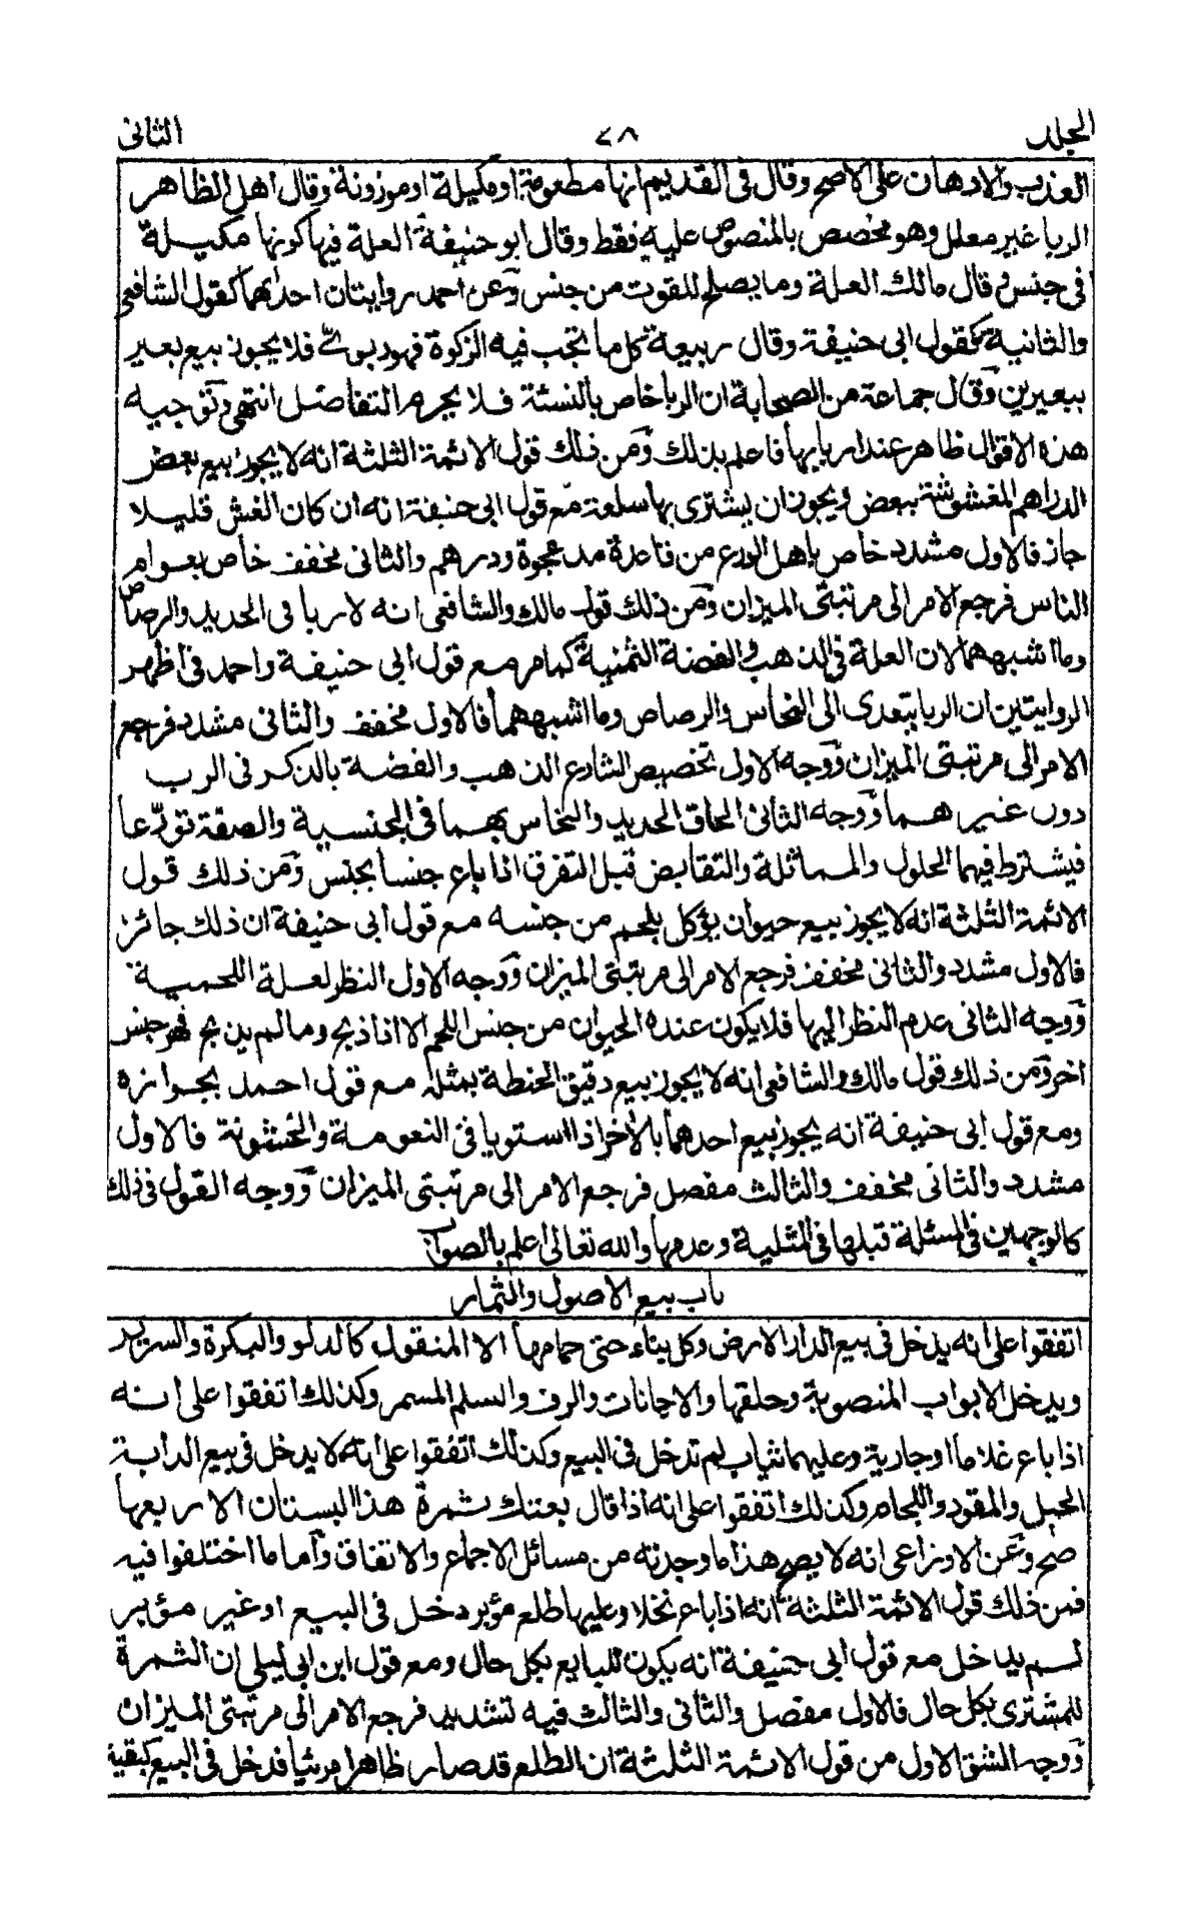 الجلد ٤٨ الثانى
العذب والادهان على الاصح وقال فى القديم انها مطعومة او مكيلة او موزونة وقال اهل الظاهر
الربا غير معلل وهو مخصص بالمنصوص عليه فقط وقال ابو حنيفة العلة فيها كونها مكيلة
فى جنس وقال مالك العلة وما يصلح للقوت من جنس وعن احمد روايتان احدهما كقول الشافعى
والثانية كقول ابى حنيفة وقال ربيعة كل ما تجب فيه الزكوة فهو ربوىّ فلا يجوز بيع بعير
ببعيرين وقال جماعة من الصحابة ان الربا خاص بالنسئة فلا يحرم التفاضل انتهى وتوجيه
هذه الاقوال ظاهر عند اربابها فاعلم بذلك ومن ذلك قول الائمة الثلثة انه لا يجوز بيع بعض
الدراهم المغشوشة ببعض ويجوز ان يشترى بها سلعة مع قول ابى حنيفة انه ان كان الغش قليلا
جاز فالاول مشدد خاص باهل الورع من قاعدة مد عجوة ودرهم والثانى مخفف خاص بعوام
الناس فرجع الامر الى مرتبتى الميزان ومن ذلك قول مالك والشافعى انه لا ربا فى الحديد والرصاص
وما اشبههما لان العلة فى الذهب والفضة الثمنية كما مر مع قول ابى حنيفة واحمد فى اظهر
الروايتين ان الربا يتعدى الى النحاس والرصاص وما اشبههما فالاول مخفف والثانى مشدد فرجع
الامر الى مرتبتى الميزان ووجه الاول تخصيص الشارع الذهب والفضة بالذكر فى الرب
دون غيرهما ووجه الثانى الحاق الحديد والنحاس بهما فى الجنسية والصفة تورّعا
فيشترط فيهما الحلول والمماثلة والتقابض قبل التفرق اذا باع جنسا بجنس ومن ذلك قول
الائمة الثلثة انه لا يجوز بيع حيوان يؤكل بلحم من جنسه مع قول ابى حنيفة ان ذلك جائز
فالاول مشدد والثانى مخفف فرجع الامر الى مرتبتى الميزان ووجه الاول النظر لعلة اللحمية
ووجه الثانى عدم النظر اليها فلا يكون عنده الحيوان من جنس اللحم الا اذا ذبح وما لم يذبح فهو جنس
اخر ومن ذلك قول مالك والشافعى انه لا يجوز بيع دقيق الحنطة بمثله مع قول احمد بجوازه
ومع قول ابى حنيفة انه يجوز بيع احدهما بالاخر اذا استويا فى النعومة والخشونة فالاول
مشدد والثانى مخفف والثالث مفصل فرجع الامر الى مرتبتى الميزان ووجه القول فى ذلك
كالوجهين فى المسئلة قبلها فى المثلية وعدمها والله تعالى اعلم بالصواب
باب بيع الاصول والثمار
اتفقوا على انه يدخل فى بيع الدار الارض وكل بناء حتى حمامها الا المنقول كالدلو والبكرة والسرير
ويدخل الابواب المنصوبة وحلقها والاجانات والرف والسلم المسمر وكذلك اتفقوا على انه
اذا باع غلاما او جارية وعليهما ثياب لم تدخل فى البيع وكذلك اتفقوا على انه لا يدخل فى بيع الدابة
الحبل والمقود واللجام وكذلك اتفقوا على انه اذا قال بعتك ثمرة هذا البستان الا ربعها
صح وعن الاوزاعى انه لا يصح هذا ما وجدته من مسائل الاجماع والاتفاق وأما ما اختلفوا فيه
فمن ذلك قول الائمة الثلثة انه اذا باع نخلا وعليها طلع مؤبر دخل فى البيع او غير مؤبر
لم يدخل مع قول ابى حنيفة انه يكون للبايع بكل حال ومع قول ابن ابى ليلى ان الثمرة
للمشترى بكل حال فالاول مفصل والثانى والثالث فيه تشديد فرجع الامر الى مرتبتى الميزان
ووجه الشق الاول من قول الائمة الثلثة ان الطلع قد صار ظاهرا مرئيا فدخل فى البيع كبقية